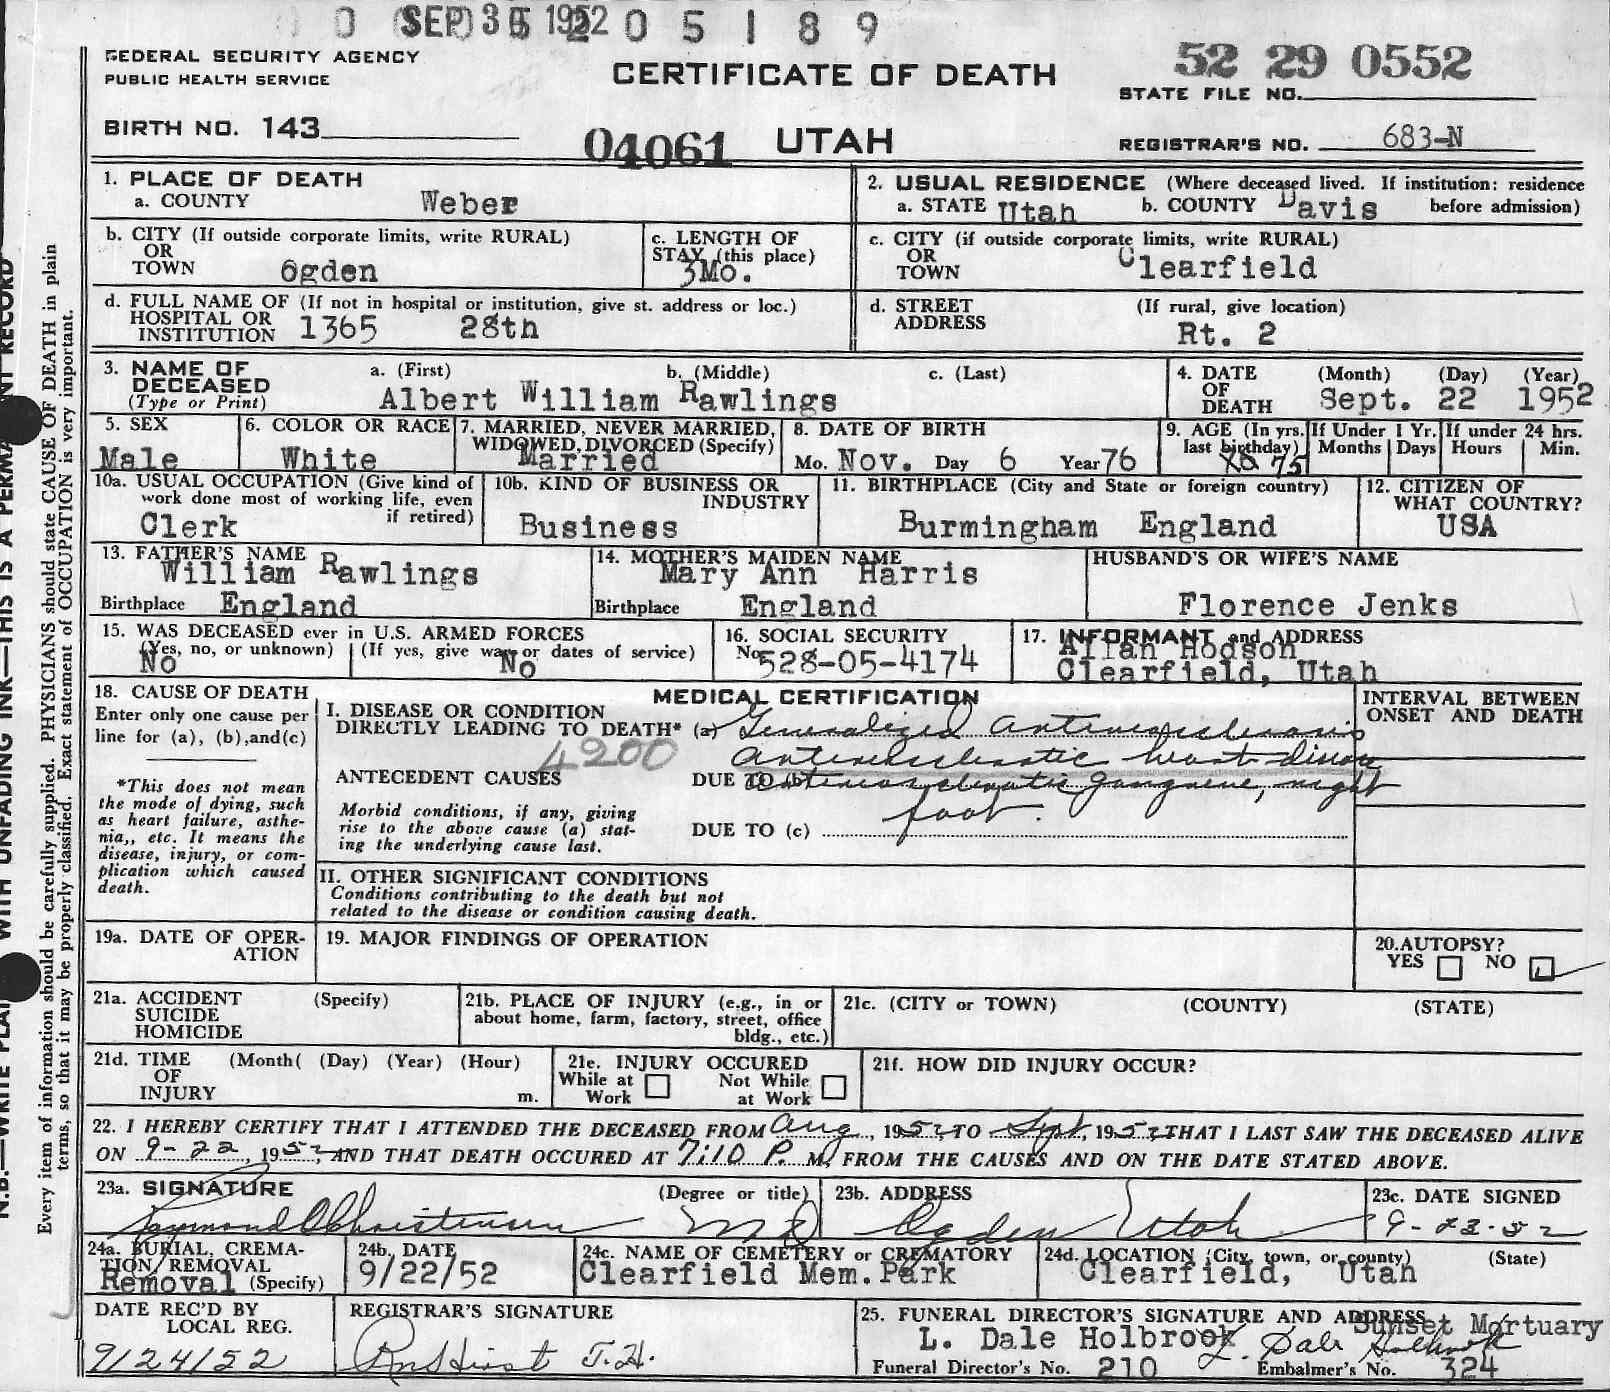 SEP 3 1952 0 5 1 8 9
FEDERAL SECURITY AGENCY
PUBLIC HEALTH SERVICE
CERTIFICATE OF DEATH
52 29 0552
STATE FILE NO.
BIRTH NO. 143
04061 UTAH
REGISTRAR'S NO. 683-N
1. PLACE OF DEATH
a. COUNTY Weber
2. USUAL RESIDENCE (Where deceased lived. If institution: residence
a. STATE Utah b. COUNTY Davis before admission)
b. CITY (If outside corporate limits, write RURAL)
OR
TOWN Ogden
c. LENGTH OF
STAY (this place)
3Mo.
c. CITY (if outside corporate limits, write RURAL)
OR
TOWN Clearfield
d. FULL NAME OF (If not in hospital or institution, give st. address or loc.)
HOSPITAL OR
INSTITUTION 1365 28th
d. STREET (If rural, give location)
ADDRESS Rt. 2
3. NAME OF a. (First) b. (Middle) c. (Last)
DECEASED
(Type or Print) Albert William Rawlings
4. DATE (Month) (Day) (Year)
OF
DEATH Sept. 22 1952
5. SEX
Male
6. COLOR OR RACE
White
7. MARRIED, NEVER MARRIED,
WIDOWED, DIVORCED (Specify)
Married
8. DATE OF BIRTH
Mo. Nov. Day 6 Year 76
9. AGE (In yrs.
last birthday) 75
If Under 1 Yr.
Months Days
If under 24 hrs.
Hours Min.
10a. USUAL OCCUPATION (Give kind of
work done most of working life, even
if retired)
Clerk
10b. KIND OF BUSINESS OR
INDUSTRY
Business
11. BIRTHPLACE (City and State or foreign country)
Burmingham England
12. CITIZEN OF
WHAT COUNTRY?
USA
13. FATHER'S NAME
William Rawlings
Birthplace England
14. MOTHER'S MAIDEN NAME
Mary Ann Harris
Birthplace England
HUSBAND'S OR WIFE'S NAME
Florence Jenks
15. WAS DECEASED ever in U.S. ARMED FORCES
(Yes, no, or unknown) (If yes, give war or dates of service)
No No
16. SOCIAL SECURITY
No. 528-05-4174
17. INFORMANT and ADDRESS
Allan Hodson
Clearfield, Utah
18. CAUSE OF DEATH
Enter only one cause per
line for (a), (b), and (c)
*This does not mean
the mode of dying, such
as heart failure, asthe-
nia,, etc. It means the
disease, injury, or com-
plication which caused
death.
MEDICAL CERTIFICATION
I. DISEASE OR CONDITION
DIRECTLY LEADING TO DEATH* (a) Generalized arteriosclerosis
4200 arteriosclerotic heart disease
ANTECEDENT CAUSES DUE TO (b) arteriosclerotic gangrene, right
foot.
Morbid conditions, if any, giving
rise to the above cause (a) stat-
ing the underlying cause last.
DUE TO (c)
INTERVAL BETWEEN
ONSET AND DEATH
II. OTHER SIGNIFICANT CONDITIONS
Conditions contributing to the death but not
related to the disease or condition causing death.
19a. DATE OF OPER-
ATION
19. MAJOR FINDINGS OF OPERATION
20. AUTOPSY?
YES NO
21a. ACCIDENT (Specify)
SUICIDE
HOMICIDE
21b. PLACE OF INJURY (e.g., in or
about home, farm, factory, street, office
bldg., etc.)
21c. (CITY or TOWN) (COUNTY) (STATE)
21d. TIME (Month( (Day) (Year) (Hour)
OF
INJURY m.
21e. INJURY OCCURED
While at Not While
Work at Work
21f. HOW DID INJURY OCCUR?
22. I HEREBY CERTIFY THAT I ATTENDED THE DECEASED FROM Aug, 1952, TO Sept, 1952, THAT I LAST SAW THE DECEASED ALIVE
ON 9-22, 1952, AND THAT DEATH OCCURED AT 7:10 P. M, FROM THE CAUSES AND ON THE DATE STATED ABOVE.
23a. SIGNATURE (Degree or title)
Raymond Christensen MD
23b. ADDRESS
Ogden Utah
23c. DATE SIGNED
9-23-52
24a. BURIAL, CREMA-
TION, REMOVAL
Removal (Specify)
24b. DATE
9/22/52
24c. NAME OF CEMETERY or CREMATORY
Clearfield Mem. Park
24d. LOCATION (City, town, or county) (State)
Clearfield, Utah
DATE REC'D BY
LOCAL REG.
9/24/52
REGISTRAR'S SIGNATURE
25. FUNERAL DIRECTOR'S SIGNATURE AND ADDRESS
Sunset Mortuary
L. Dale Holbrook L. Dale Holbrook
Funeral Director's No. 210 Embalmer's No. 324
Every item of information should be carefully supplied. PHYSICIANS should state CAUSE OF DEATH in plain
terms, so that it may be properly classified. Exact statement of OCCUPATION is very important.
WITH UNFADING INK—THIS IS A